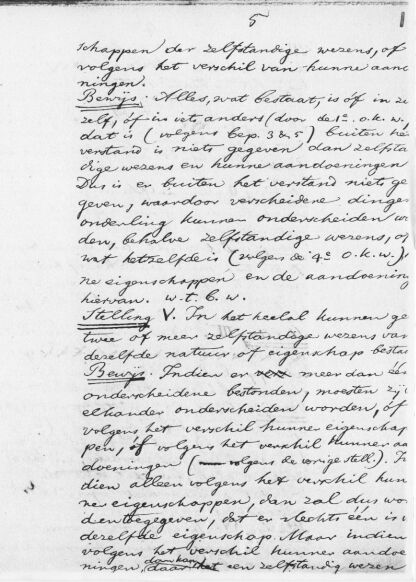 5
schappen der zelfstandige wezens, of
volgens het verschil van hunne aand
ningen.
Bewijs. Alles, wat bestaat, is óf in ze
zelf, óf in iets anders (door de 1e o.k.w.
dat is (volgens bep. 3 & 5) buiten he
verstand is niets gegeven dan zelfsta
dige wezens en hunne aandoeningen
Dus is er buiten het verstand niets ge
geven, waardoor verscheidene dingen
onderling kunnen onderscheiden wo
den, behalve zelfstandige wezens, of
wat hetzelfde is (volgens de 4e o.k.w.)
ne eigenschappen en de aandoening
hiervan. w.t.b.w.
Stelling V. In het heelal kunnen ge
twee of meer zelfstandige wezens van
dezelfde natuur of eigenschap bestaa
Bewijs. Indien er meer dan één
onderscheidene bestonden, moesten zij
elkander onderscheiden worden, óf
volgens het verschil hunner eigenschap
pen, óf volgens het verschil hunner aa
doeningen (volgens de vorige stell.). In
dien alleen volgens het verschil hun
ner eigenschappen, dan zal dus wor
den toegegeven, dat er slechts één is v
dezelfde eigenschap. Maar indien
volgens het verschil hunner aandoe
ningen, dan kan, daar een zelfstandig wezen